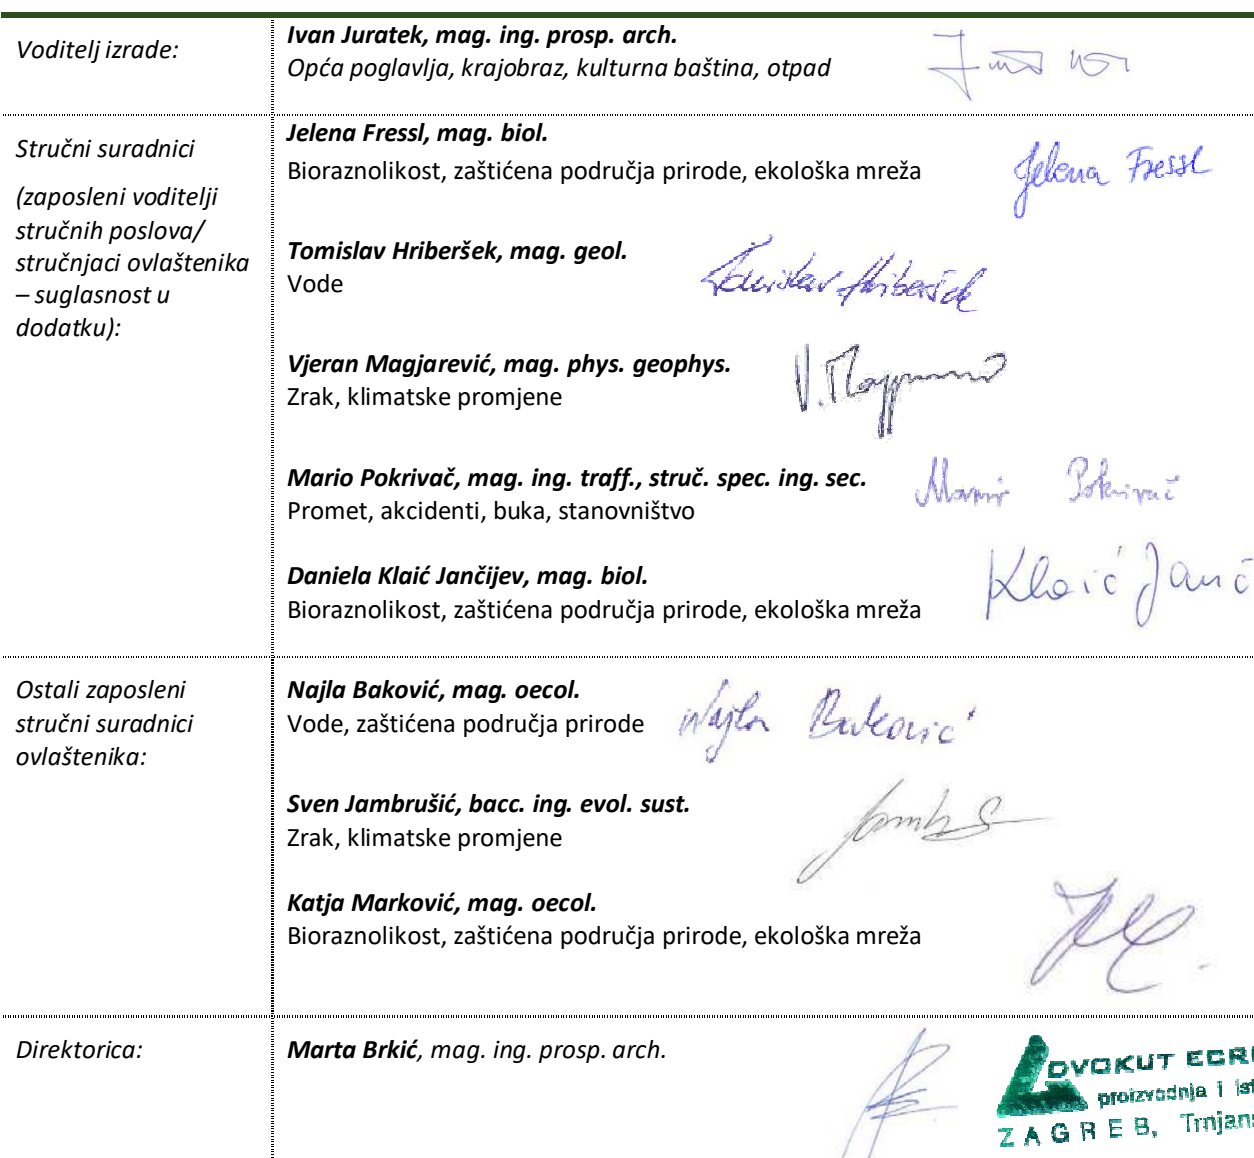 Voditelj izrade:
Ivan Juratek, mag. ing. prosp. arch.
Opća poglavlja, krajobraz, kulturna baština, otpad
Stručni suradnici
(zaposleni voditelji
stručnih poslova/
stručnjaci ovlaštenika
– suglasnost u
dodatku):
Jelena Fressl, mag. biol.
Bioraznolikost, zaštićena područja prirode, ekološka mreža
Jelena Fressl
Tomislav Hriberšek, mag. geol.
Vode
Tomislav Hriberšek
Vjeran Magjarević, mag. phys. geophys.
Zrak, klimatske promjene
Mario Pokrivač, mag. ing. traff., struč. spec. ing. sec.
Promet, akcidenti, buka, stanovništvo
Mario Pokrivač
Daniela Klaić Jančijev, mag. biol.
Bioraznolikost, zaštićena područja prirode, ekološka mreža
Klaić Janč
Ostali zaposleni
stručni suradnici
ovlaštenika:
Najla Baković, mag. oecol.
Vode, zaštićena područja prirode
Najla Baković
Sven Jambrušić, bacc. ing. evol. sust.
Zrak, klimatske promjene
Katja Marković, mag. oecol.
Bioraznolikost, zaštićena područja prirode, ekološka mreža
Direktorica:
Marta Brkić, mag. ing. prosp. arch.
DVOKUT ECR
proizvodnja i ist
ZAGREB, Trnjans